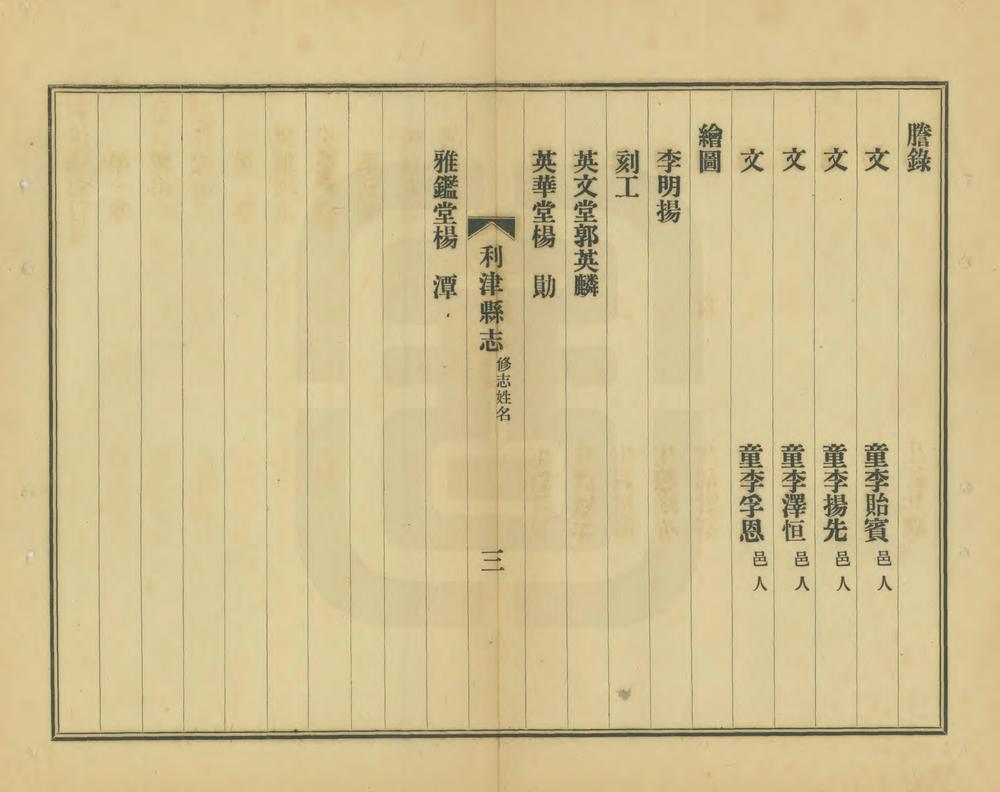 謄錄
文　童李貽賓邑人
文　童李揚先邑人
文　童李澤恒邑人
文　童李孚恩邑人
繪圖
李明揚
刻工
英文堂郭英麟
英華堂楊　勛
利津縣志修志姓名　三
雅鑑堂楊　潭